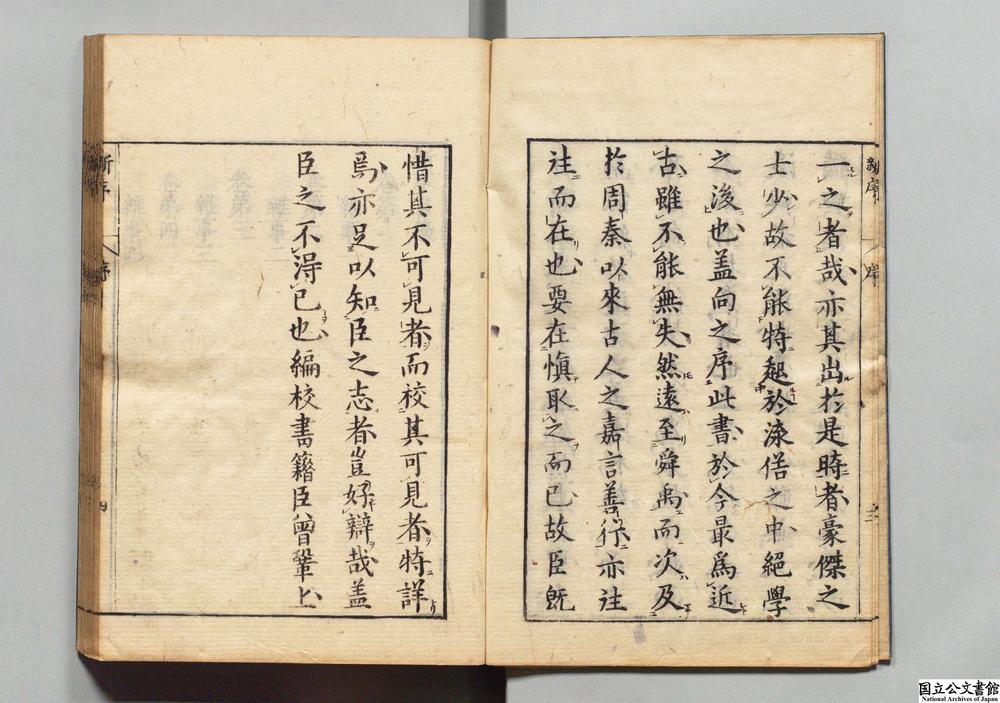 一之者哉亦其出於是時者豪傑之
士少故不能特起於流俗之中絕學
之後也盖向之序此書於今最爲近
古雖不能無失然遠至舜禹而次及
於周秦以來古人之嘉言善行亦往
往而在也要在慎取之而已故臣旣
惜其不可見者而校其可見者特詳
焉亦足以知臣之志者豈好辯哉盖
臣之不得已也編校書籍臣曾鞏上
新序
序
新序
序
四
国立公文書館
National Archives of Japan